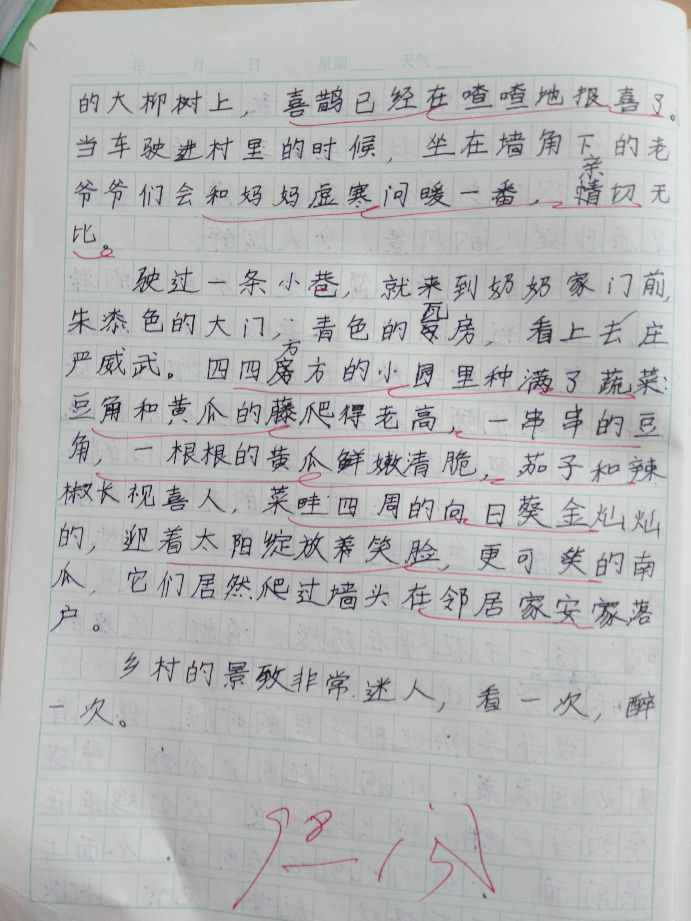 年 月 日 星期 天气
的大柳树上，喜鹊已经在喳喳地报喜了。
当车驶进村里的时候，坐在墙角下的老
爷爷们会和妈妈虚寒问暖一番，亲情切无
比。
驶过一条小巷，就来到奶奶家门前，
朱漆色的大门，青色的瓦房，看上去庄
严威武。四四方方的小园里种满了蔬菜：
豆角和黄瓜的藤爬得老高，一串串的豆
角，一根根的黄瓜鲜嫩清脆，茄子和辣
椒长视喜人，菜畦四周的向日葵金灿灿
的，迎着太阳绽放着笑脸，更可笑的南
瓜，它们居然爬过墙头在邻居家安家落
户。
乡村的景致非常迷人，看一次，醉
一次。
98